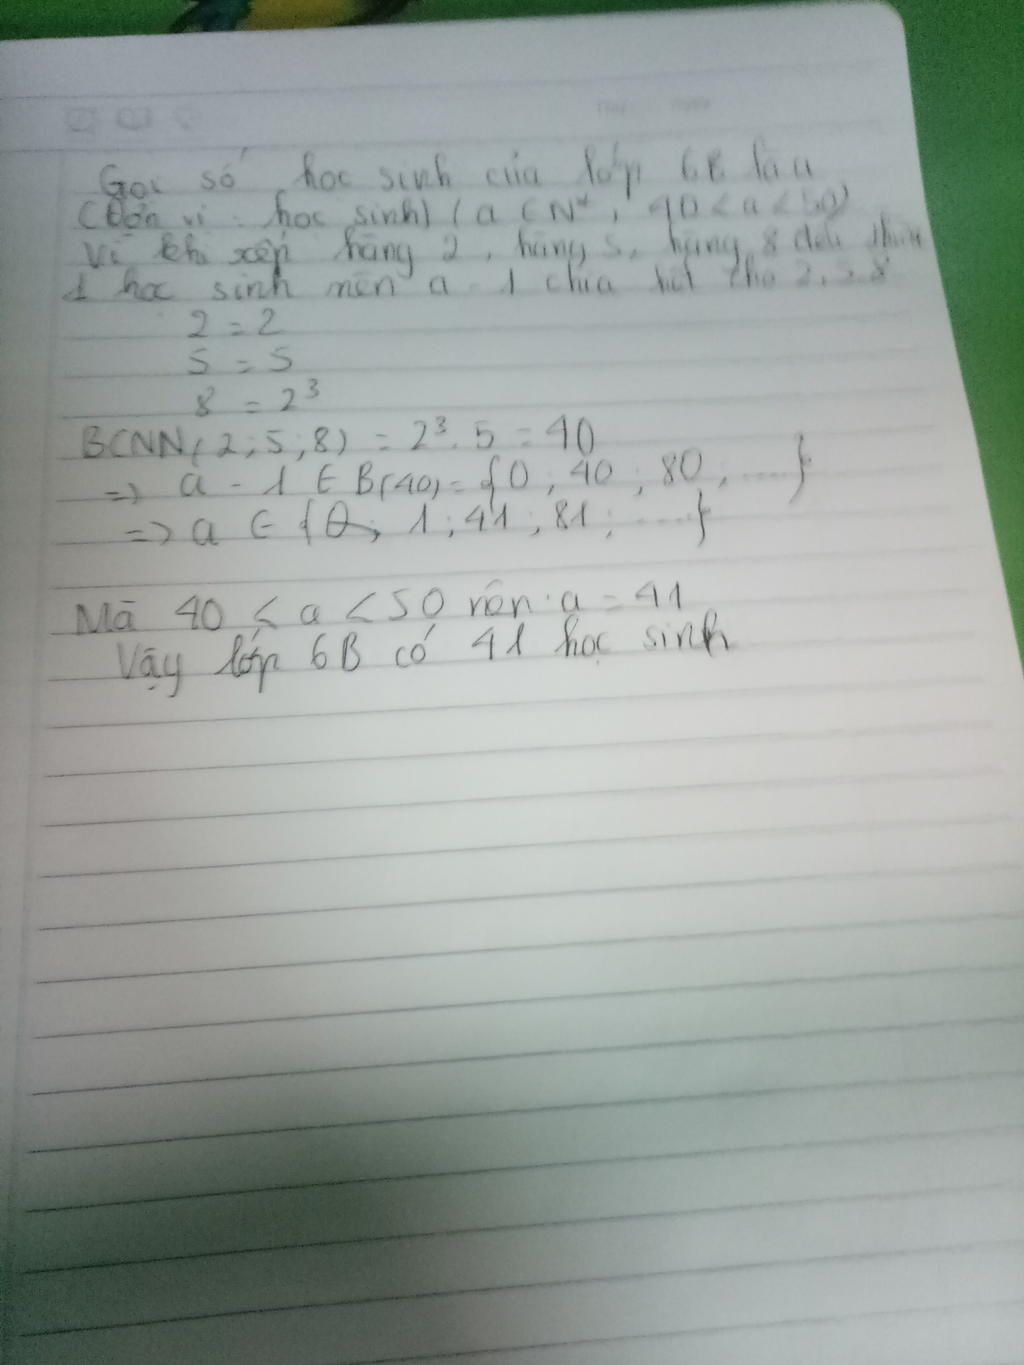 Gọi số học sinh của lớp 6B là a
(Đơn vị: học sinh) (a ∈ N*, 40 < a < 50)
Vì khi xếp hàng 2, hàng 5, hàng 8 đều thừa
1 học sinh nên a - 1 chia hết cho 2, 5, 8
2 = 2
5 = 5
8 = 2³
BCNN(2;5;8) = 2³.5 = 40
=> a - 1 ∈ B(40) = {0; 40; 80; ....}
=> a ∈ {1; 41; 81; ....}
Mà 40 < a < 50 nên a = 41
Vậy lớp 6B có 41 học sinh